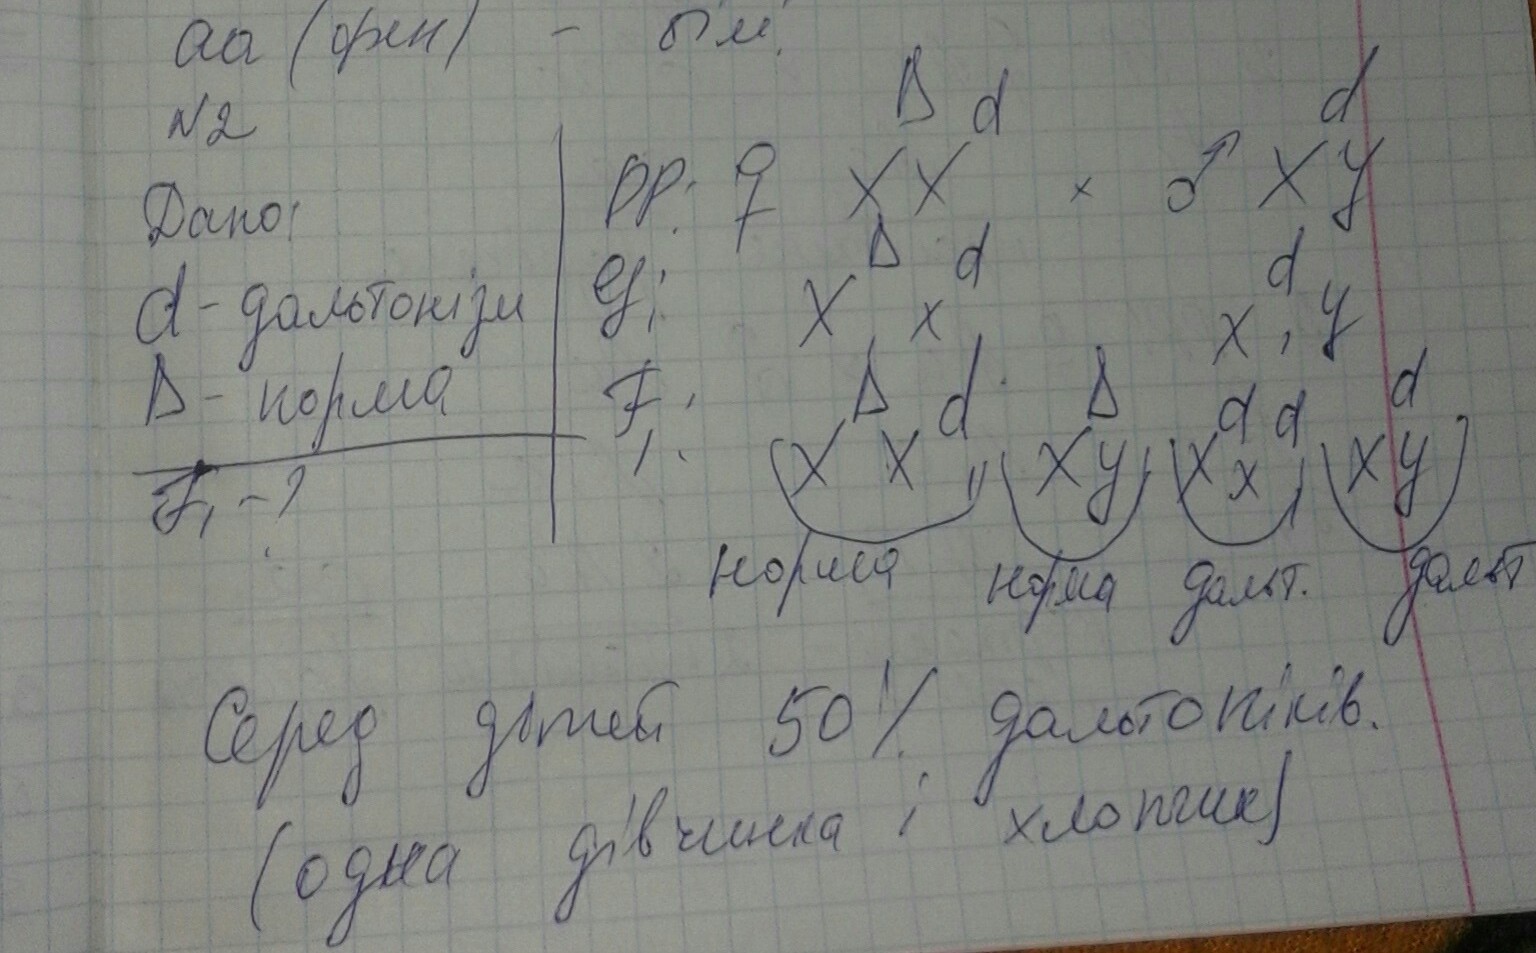 аа (фен) - біл.
N2
Дано:
d - дальтонізм
D - норма
F₁ - ?
PP: ♀ XᴰXᵈ × ♂ XᵈY
G: Xᴰ, Xᵈ, Xᵈ, Y
F₁: XᴰXᵈ, XᴰY XᵈXᵈ XᵈY
норма норма дальт. дальт
Серед дітей 50% дальтоніків.
(одна дівчинка і хлопчик)